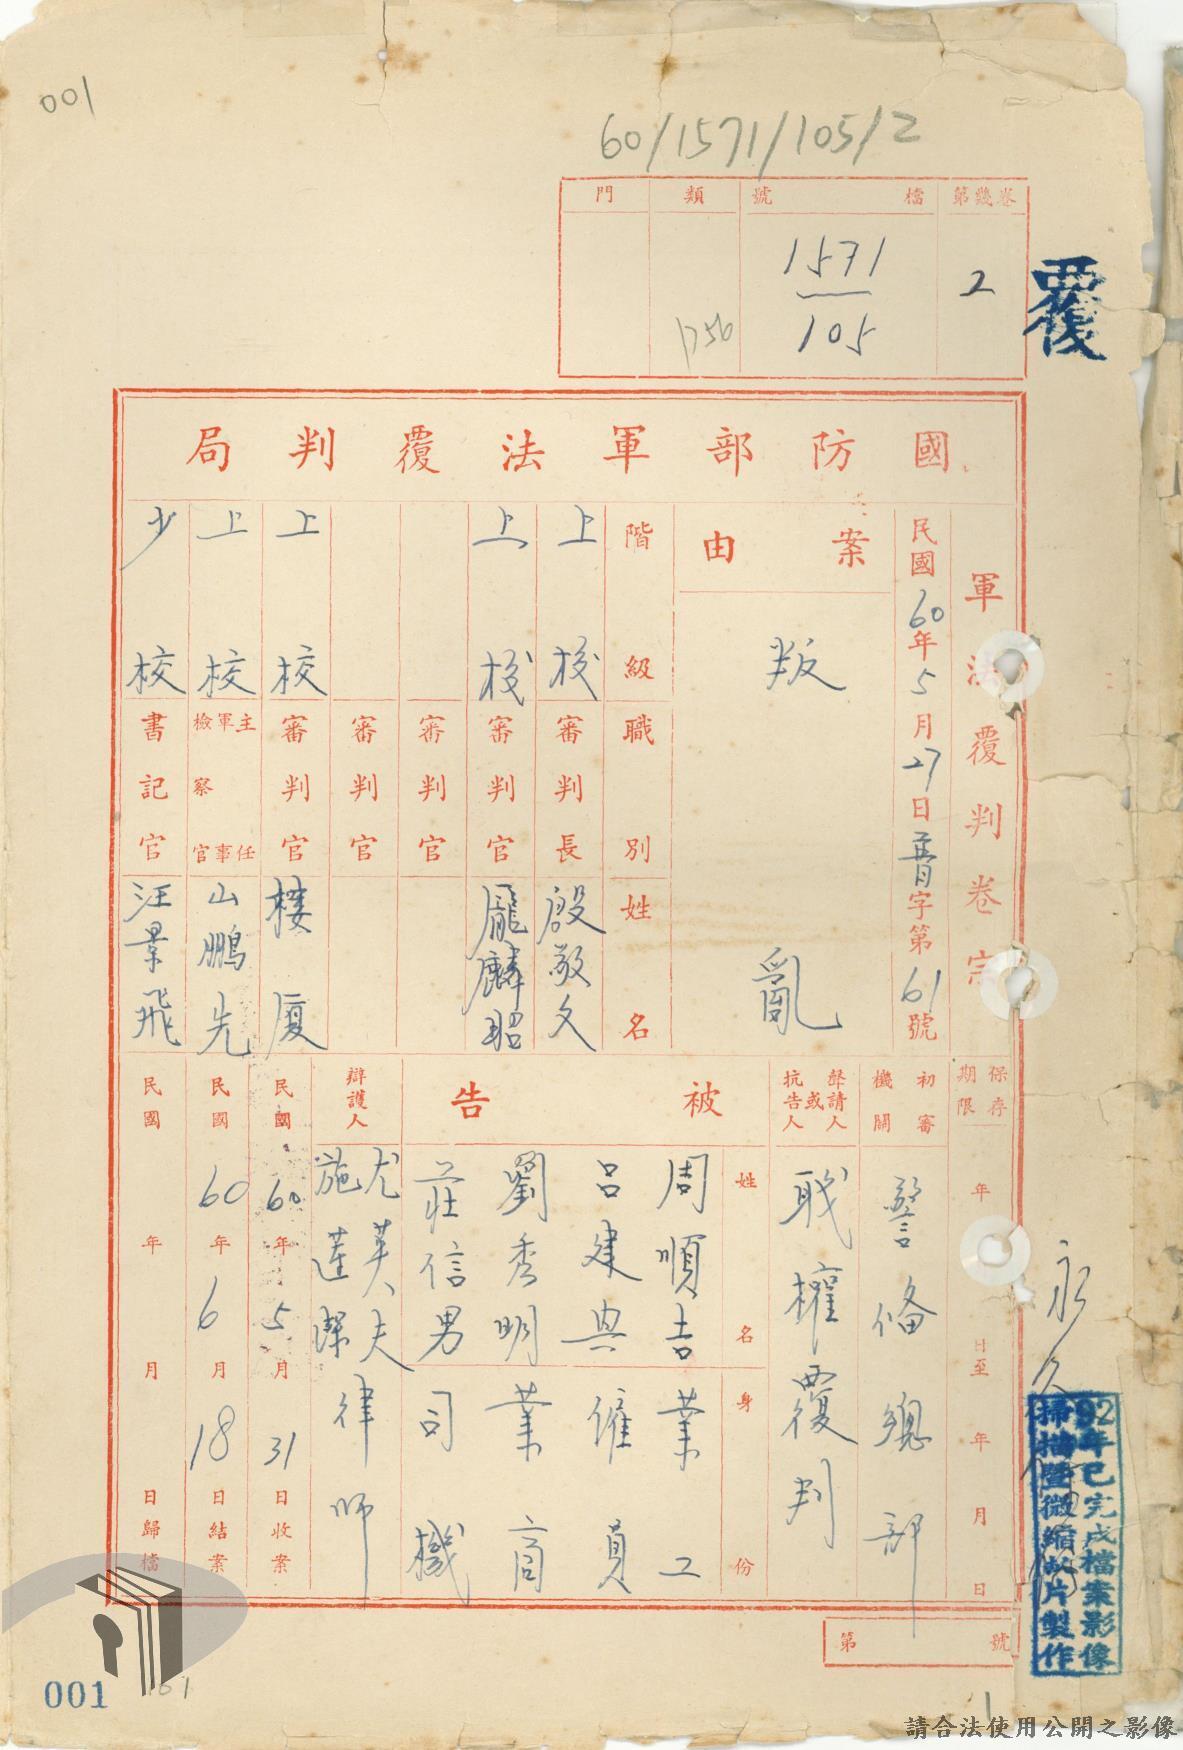 001
60/1571/105/2
第幾卷 2
檔號 1571/105
類 1756
門
覆
國防部軍法覆判局
軍法覆判卷宗
民國60年5月27日普字第61號
案由
叛亂
階級 職別 姓名
上校 審判長 殷敬文
上校 審判官 龐麟昭
審判官
審判官
上校 審判官 樓厦
上校 主任軍事檢察官 山鵬先
少校 書記官 汪景飛
保存期限 年 月 日至 年 月 日
永久
初審機關 警備總部
聲請人或抗告人 職權覆判
被告
姓名 身份
周順吉 業工
呂建興 僱員
劉秀明 業商
莊信男 司機
辯護人 尤英夫 施蓮潔 律師
民國60年5月31日收案
民國60年6月18日結案
民國 年 月 日歸檔
第 號
92年已完成檔案影像
掃描暨微縮片製作
001
1
請合法使用公開之影像